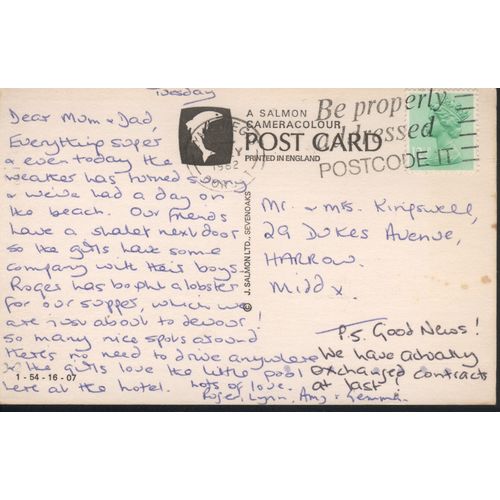 Tuesday
Dear Mum & Dad,
Everything super
& even today the
weather has turned sunny
& we've had a day on
the beach. Our friends
have a shalet next door
so the girls have some
company with their boys.
Roger has bought a lobster
for our supper, which we
are just about to devour!
So many nice spots around
there's no need to drive anywhere
& the girls love the little pool
here at the hotel. Lots of love.
Roger, Lynn, Amy & Gemma.
1-54-16-07
A SALMON
CAMERACOLOUR
POST CARD
PRINTED IN ENGLAND
© J. SALMON LTD., SEVENOAKS
1982
Be properly
addressed
POSTCODE IT
Mr. & Mrs. Kingswell,
29 DUKES AVENUE,
HARROW.
MIDDX.
P.S. Good News!
We have actually
exchanged contracts
at last